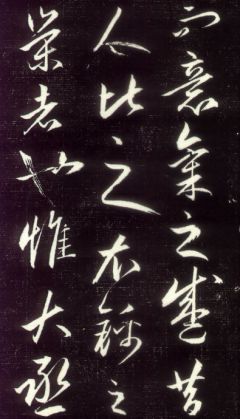 而意氣之盛昔
人比之衣錦之
榮者也惟大丞